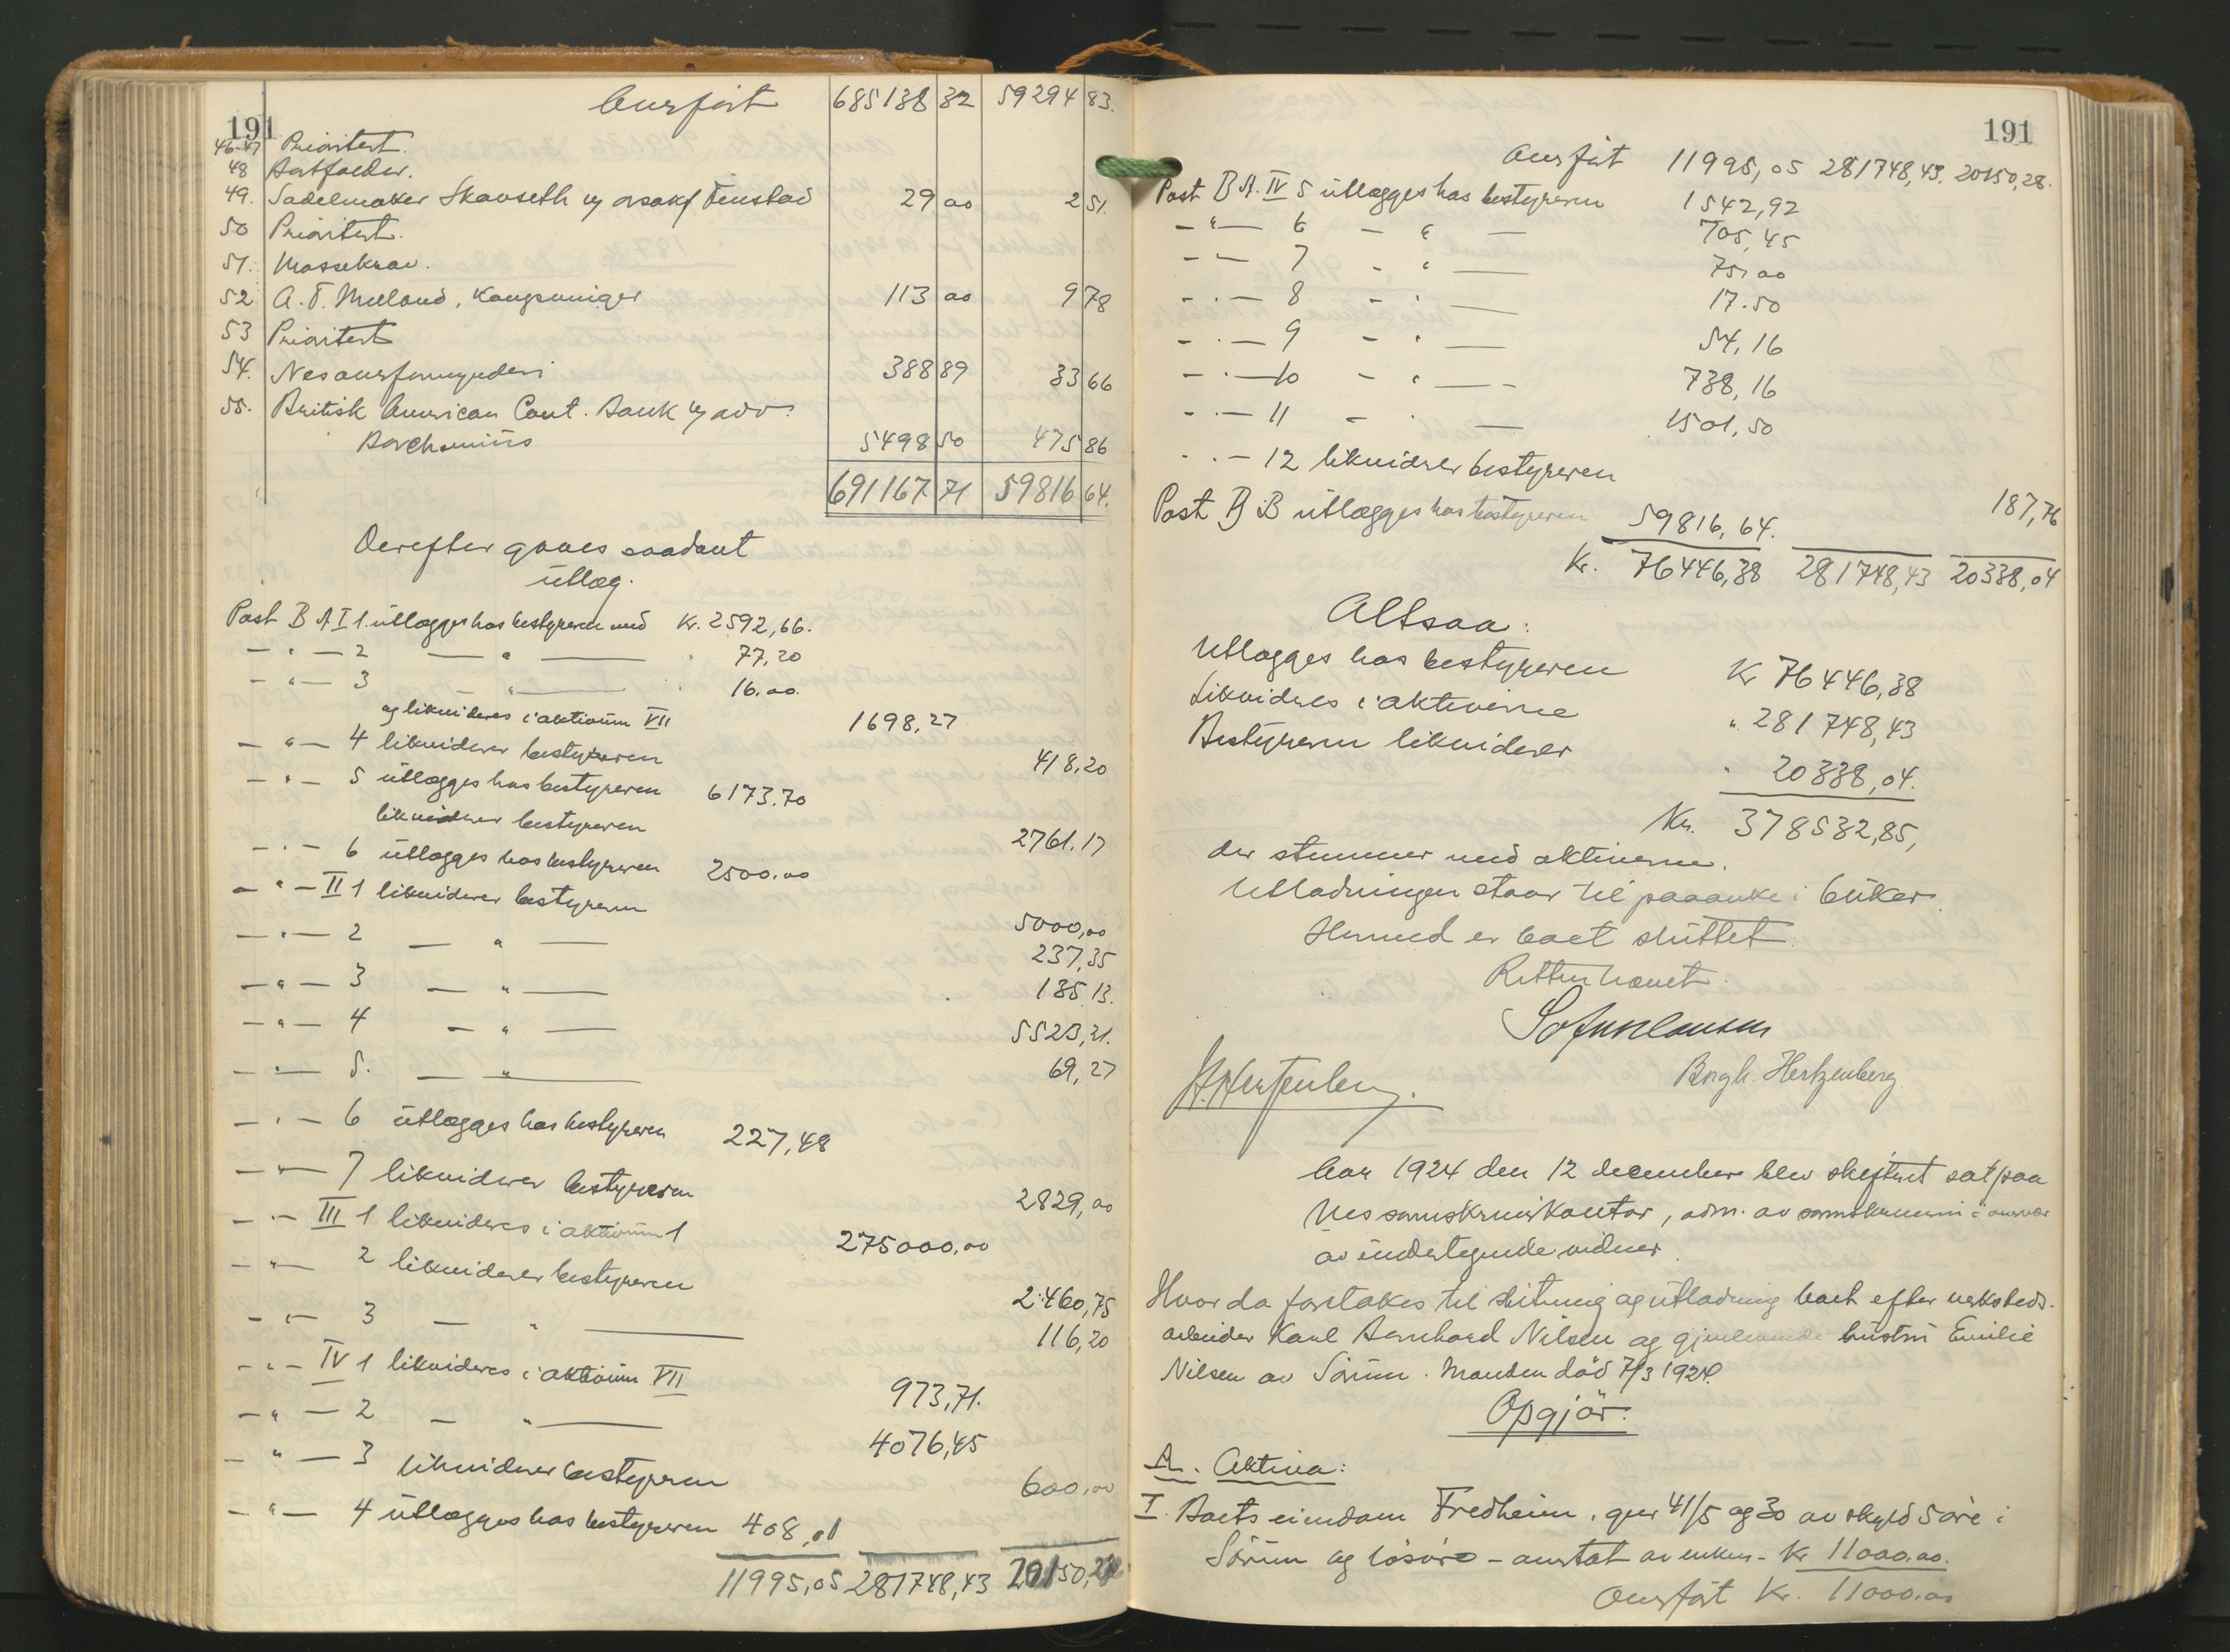 Overført 685138 32 59294 83.
191
46-47 Prioritert.
48 Bortfalder.
49. Sadelmaker Skavseth v/ orsakf Fenstad 29 00 2 51.
50 Prioritert.
51. Massekrav.
52 A. T. Mæland, Kongsvinger 113 00 9 78
53 Prioritert
54. Nes overformynderi 388 89 33 66
55. Britisk American Cont. Bank v/ adv.
Borchsenius 5498 50 475 86
691167 71 59816 64.
Derefter gjøres saadant
utlæg.
Post B A I 1. utlægges hos bestyreren med Kr. 2592,66.
— " — 2 — " — 77,20
— " — 3 — " — 16.00.
og likvideres i aktivum VII 1698,27
— " — 4 likviderer bestyreren 418,20
— " — 5 utlægges hos bestyreren 6173.70
likviderer bestyreren 2761.17
— " — 6 utlægges hos bestyreren 2500.00
— " — II 1 likviderer bestyreren 5000,00
— " — 2 — " — 237,35
— " — 3 — " — 135,13.
— " — 4 — " — 5523,21.
— " — 5. — " — 69,27
— " — 6 utlægges hos bestyreren 227,48
— " — 7 likviderer bestyreren 2829,00
— " — III 1 likvideres i aktivum 1 275000.00
— " — 2 likviderer bestyreren 2460,75
— " — 3 — " — 116,20
— " — IV 1 likvideres i aktivum VII 973,71.
— " — 2 — " — 4076,45
— " — 3 likviderer bestyreren 600,00
— " — 4 utlægges hos bestyreren 408,01
11995,05 281748,43 20150,28
191
Overført 11995,05 281748,43. 20150,28.
Post B A. IV 5 utlægges hos bestyreren 1542,92
— " — 6 — " — 705,45
— " — 7 — " — 75,00
— " — 8 — " — 17.50
— " — 9 — " — 54,16
— " — 10 — " — 738,16
— " — 11 — " — 1501,50
— " — 12 likviderer bestyreren 187,76
Post B B utlægges hos bestyreren 59816,64.
Kr. 76446,38 281748,43 20338,04
Altsaa:
Utlægges hos bestyreren Kr 76446,38
Likvideres i aktiverne " 281748,43
Bestyreren likviderer " 20338,04.
Kr. 378532,85,
der stemmer med aktiverne.
Utlodningen staar til paaanke i 6 uker.
Hermed er boet sluttet.
Retten hævet.
Borgh. Hertzenberg
Aar 1924 den 12 december blev skifteret sat paa
Nes sorenskriverkontor, adm. av sorenskriveren i overvær
av undertegnede vidner.
Hvor da foretokes til slutning og utlodning boet efter verksteds-
arbeider Karl Bernhard Nilsen og gjenlevende hustru Emilie
Nilsen av Sørum. Manden död 7/3 1924.
Opgjör:
A. Aktiva:
I. Boets eiendom Fredheim, gnr 41/5 og 30 av skyld 5 øre i
Sörum og lösöre - overtat av enken - Kr 11000.00.
Overført Kr. 11000.00